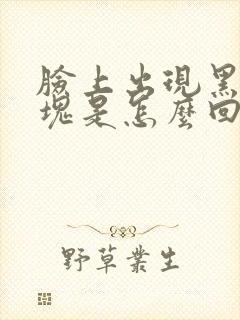 臉上出現黑
塊是怎麼回
野草叢生